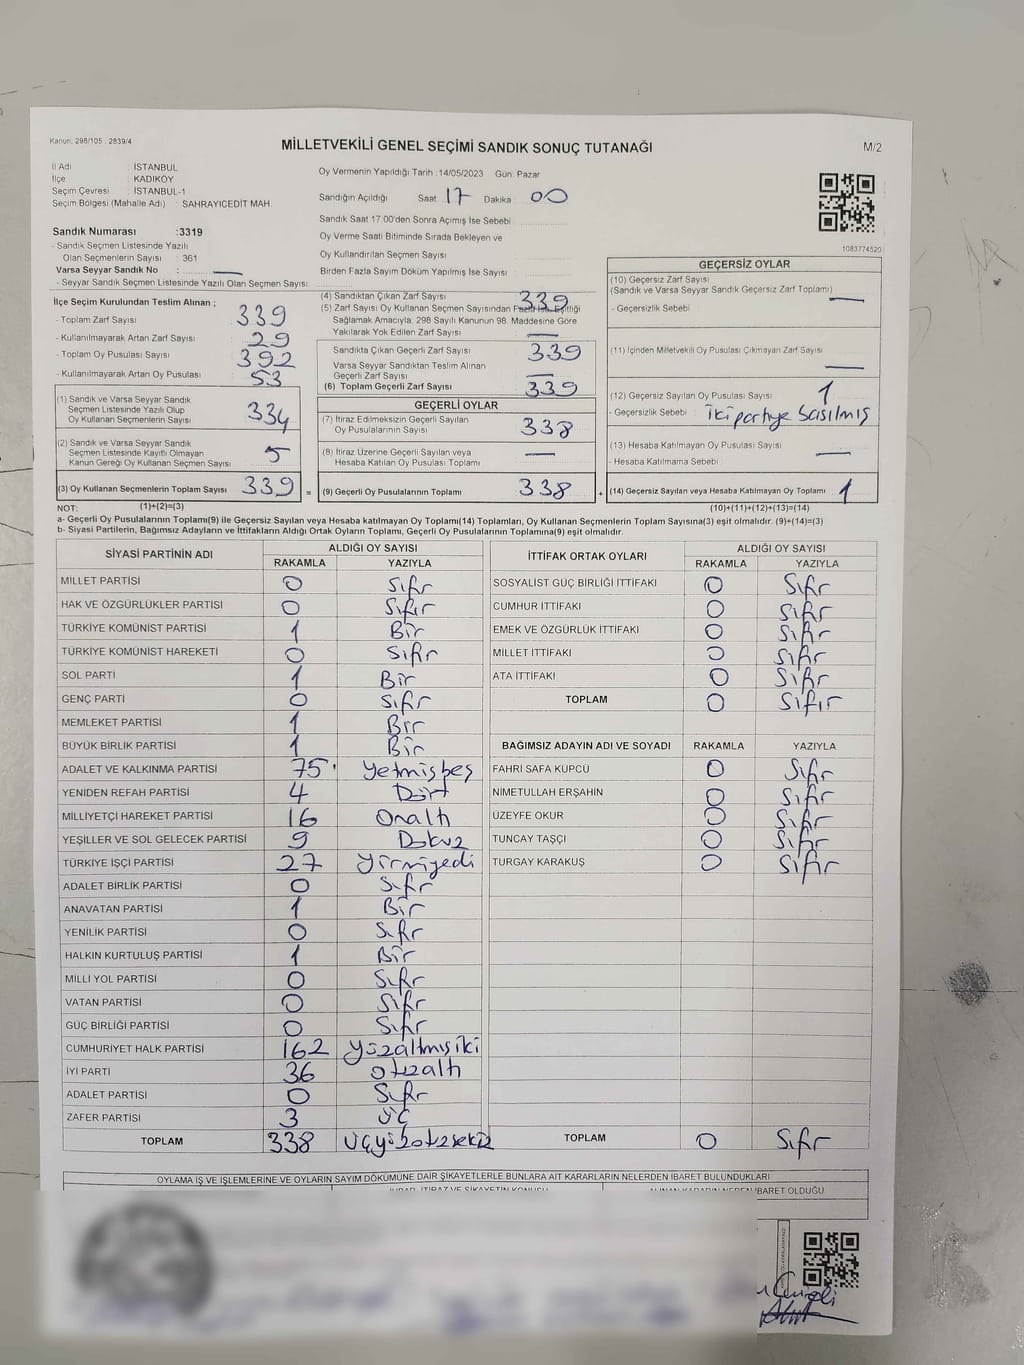 Kanun: 298/105 . 2839/4
MİLLETVEKİLİ GENEL SEÇİMİ SANDIK SONUÇ TUTANAĞI
M/2
İl Adı : İSTANBUL
İlçe : KADIKÖY
Seçim Çevresi : İSTANBUL-1
Seçim Bölgesi (Mahalle Adı) : SAHRAYICEDİT MAH.
Oy Vermenin Yapıldığı Tarih :14/05/2023 Gün: Pazar
Sandığın Açıldığı Saat 17 Dakika 00
Sandık Saat 17.00'den Sonra Açımış İse Sebebi
Oy Verme Saati Bitiminde Sırada Bekleyen ve
Oy Kullandırılan Seçmen Sayısı
Birden Fazla Sayım Döküm Yapılmış İse Sayısı
1083774520
Sandık Numarası :3319
- Sandık Seçmen Listesinde Yazılı
Olan Seçmenlerin Sayısı : 361
Varsa Seyyar Sandık No :
- Seyyar Sandık Seçmen Listesinde Yazılı Olan Seçmen Sayısı:
İlçe Seçim Kurulundan Teslim Alınan ;
- Toplam Zarf Sayısı 339
- Kullanılmayarak Artan Zarf Sayısı 29
- Toplam Oy Pusulası Sayısı 392
- Kullanılmayarak Artan Oy Pusulası 53
(1) Sandık ve Varsa Seyyar Sandık
Seçmen Listesinde Yazılı Olup
Oy Kullanan Seçmenlerin Sayısı 334
(2) Sandık ve Varsa Seyyar Sandık
Seçmen Listesinde Kayıtlı Olmayan
Kanun Gereği Oy Kullanan Seçmen Sayısı 5
(3) Oy Kullanan Seçmenlerin Toplam Sayısı 339 =
(4) Sandıktan Çıkan Zarf Sayısı 339
(5) Zarf Sayısı Oy Kullanan Seçmen Sayısından Fazla İse, Eşitliği
Sağlamak Amacıyla, 298 Sayılı Kanunun 98. Maddesine Göre
Yakılarak Yok Edilen Zarf Sayısı —
Sandıkta Çıkan Geçerli Zarf Sayısı 339
Varsa Seyyar Sandıktan Teslim Alınan
Geçerli Zarf Sayısı —
(6) Toplam Geçerli Zarf Sayısı 339
GEÇERLİ OYLAR
(7) İtiraz Edilmeksizin Geçerli Sayılan
Oy Pusulalarının Sayısı 338
(8) İtiraz Üzerine Geçerli Sayılan veya
Hesaba Katılan Oy Pusulası Toplamı —
(9) Geçerli Oy Pusulalarının Toplamı 338 +
GEÇERSİZ OYLAR
(10) Geçersiz Zarf Sayısı
(Sandık ve Varsa Seyyar Sandık Geçersiz Zarf Toplamı) —
- Geçersizlik Sebebi :
(11) İçinden Milletvekili Oy Pusulası Çıkmayan Zarf Sayısı —
(12) Geçersiz Sayılan Oy Pusulası Sayısı 1
- Geçersizlik Sebebi : iki partiye basılmış
(13) Hesaba Katılmayan Oy Pusulası Sayısı —
- Hesaba Katılmama Sebebi :
(14) Geçersiz Sayılan veya Hesaba Katılmayan Oy Toplamı 1
NOT: (1)+(2)=(3) (10)+(11)+(12)+(13)=(14)
a- Geçerli Oy Pusulalarının Toplamı(9) ile Geçersiz Sayılan veya Hesaba katılmayan Oy Toplamı(14) Toplamları, Oy Kullanan Seçmenlerin Toplam Sayısına(3) eşit olmalıdır. (9)+(14)=(3)
b- Siyasi Partilerin, Bağımsız Adayların ve İttifakların Aldığı Ortak Oyların Toplamı, Geçerli Oy Pusulalarının Toplamına(9) eşit olmalıdır.
SİYASİ PARTİNİN ADI ALDIĞI OY SAYISI
RAKAMLA YAZIYLA
MİLLET PARTİSİ 0 Sıfır
HAK VE ÖZGÜRLÜKLER PARTİSİ 0 Sıfır
TÜRKİYE KOMÜNİST PARTİSİ 1 Bir
TÜRKİYE KOMÜNİST HAREKETİ 0 Sıfır
SOL PARTİ 1 Bir
GENÇ PARTİ 0 Sıfır
MEMLEKET PARTİSİ 1 Bir
BÜYÜK BİRLİK PARTİSİ 1 Bir
ADALET VE KALKINMA PARTİSİ 75 Yetmişbeş
YENİDEN REFAH PARTİSİ 4 Dört
MİLLİYETÇİ HAREKET PARTİSİ 16 Onaltı
YEŞİLLER VE SOL GELECEK PARTİSİ 9 Dokuz
TÜRKİYE İŞÇİ PARTİSİ 27 Yirmiyedi
ADALET BİRLİK PARTİSİ 0 Sıfır
ANAVATAN PARTİSİ 1 Bir
YENİLİK PARTİSİ 0 Sıfır
HALKIN KURTULUŞ PARTİSİ 1 Bir
MİLLİ YOL PARTİSİ 0 Sıfır
VATAN PARTİSİ 0 Sıfır
GÜÇ BİRLİĞİ PARTİSİ 0 Sıfır
CUMHURİYET HALK PARTİSİ 162 Yüzaltmışiki
İYİ PARTİ 36 otuzaltı
ADALET PARTİSİ 0 Sıfır
ZAFER PARTİSİ 3 Üç
TOPLAM 338 Üçyüzotuzsekiz
İTTİFAK ORTAK OYLARI ALDIĞI OY SAYISI
RAKAMLA YAZIYLA
SOSYALİST GÜÇ BİRLİĞİ İTTİFAKI 0 Sıfır
CUMHUR İTTİFAKI 0 Sıfır
EMEK VE ÖZGÜRLÜK İTTİFAKI 0 Sıfır
MİLLET İTTİFAKI 0 Sıfır
ATA İTTİFAKI 0 Sıfır
TOPLAM 0 Sıfır
BAĞIMSIZ ADAYIN ADI VE SOYADI RAKAMLA YAZIYLA
FAHRİ SAFA KÜPCÜ 0 Sıfır
NİMETULLAH ERŞAHİN 0 Sıfır
ÜZEYFE OKUR 0 Sıfır
TUNCAY TAŞÇI 0 Sıfır
TURGAY KARAKUŞ 0 Sıfır
TOPLAM 0 Sıfır
OYLAMA İŞ VE İŞLEMLERİNE VE OYLARIN SAYIM DÖKÜMÜNE DAİR ŞİKAYETLERLE BUNLARA AİT KARARLARIN NELERDEN İBARET BULUNDUKLARI